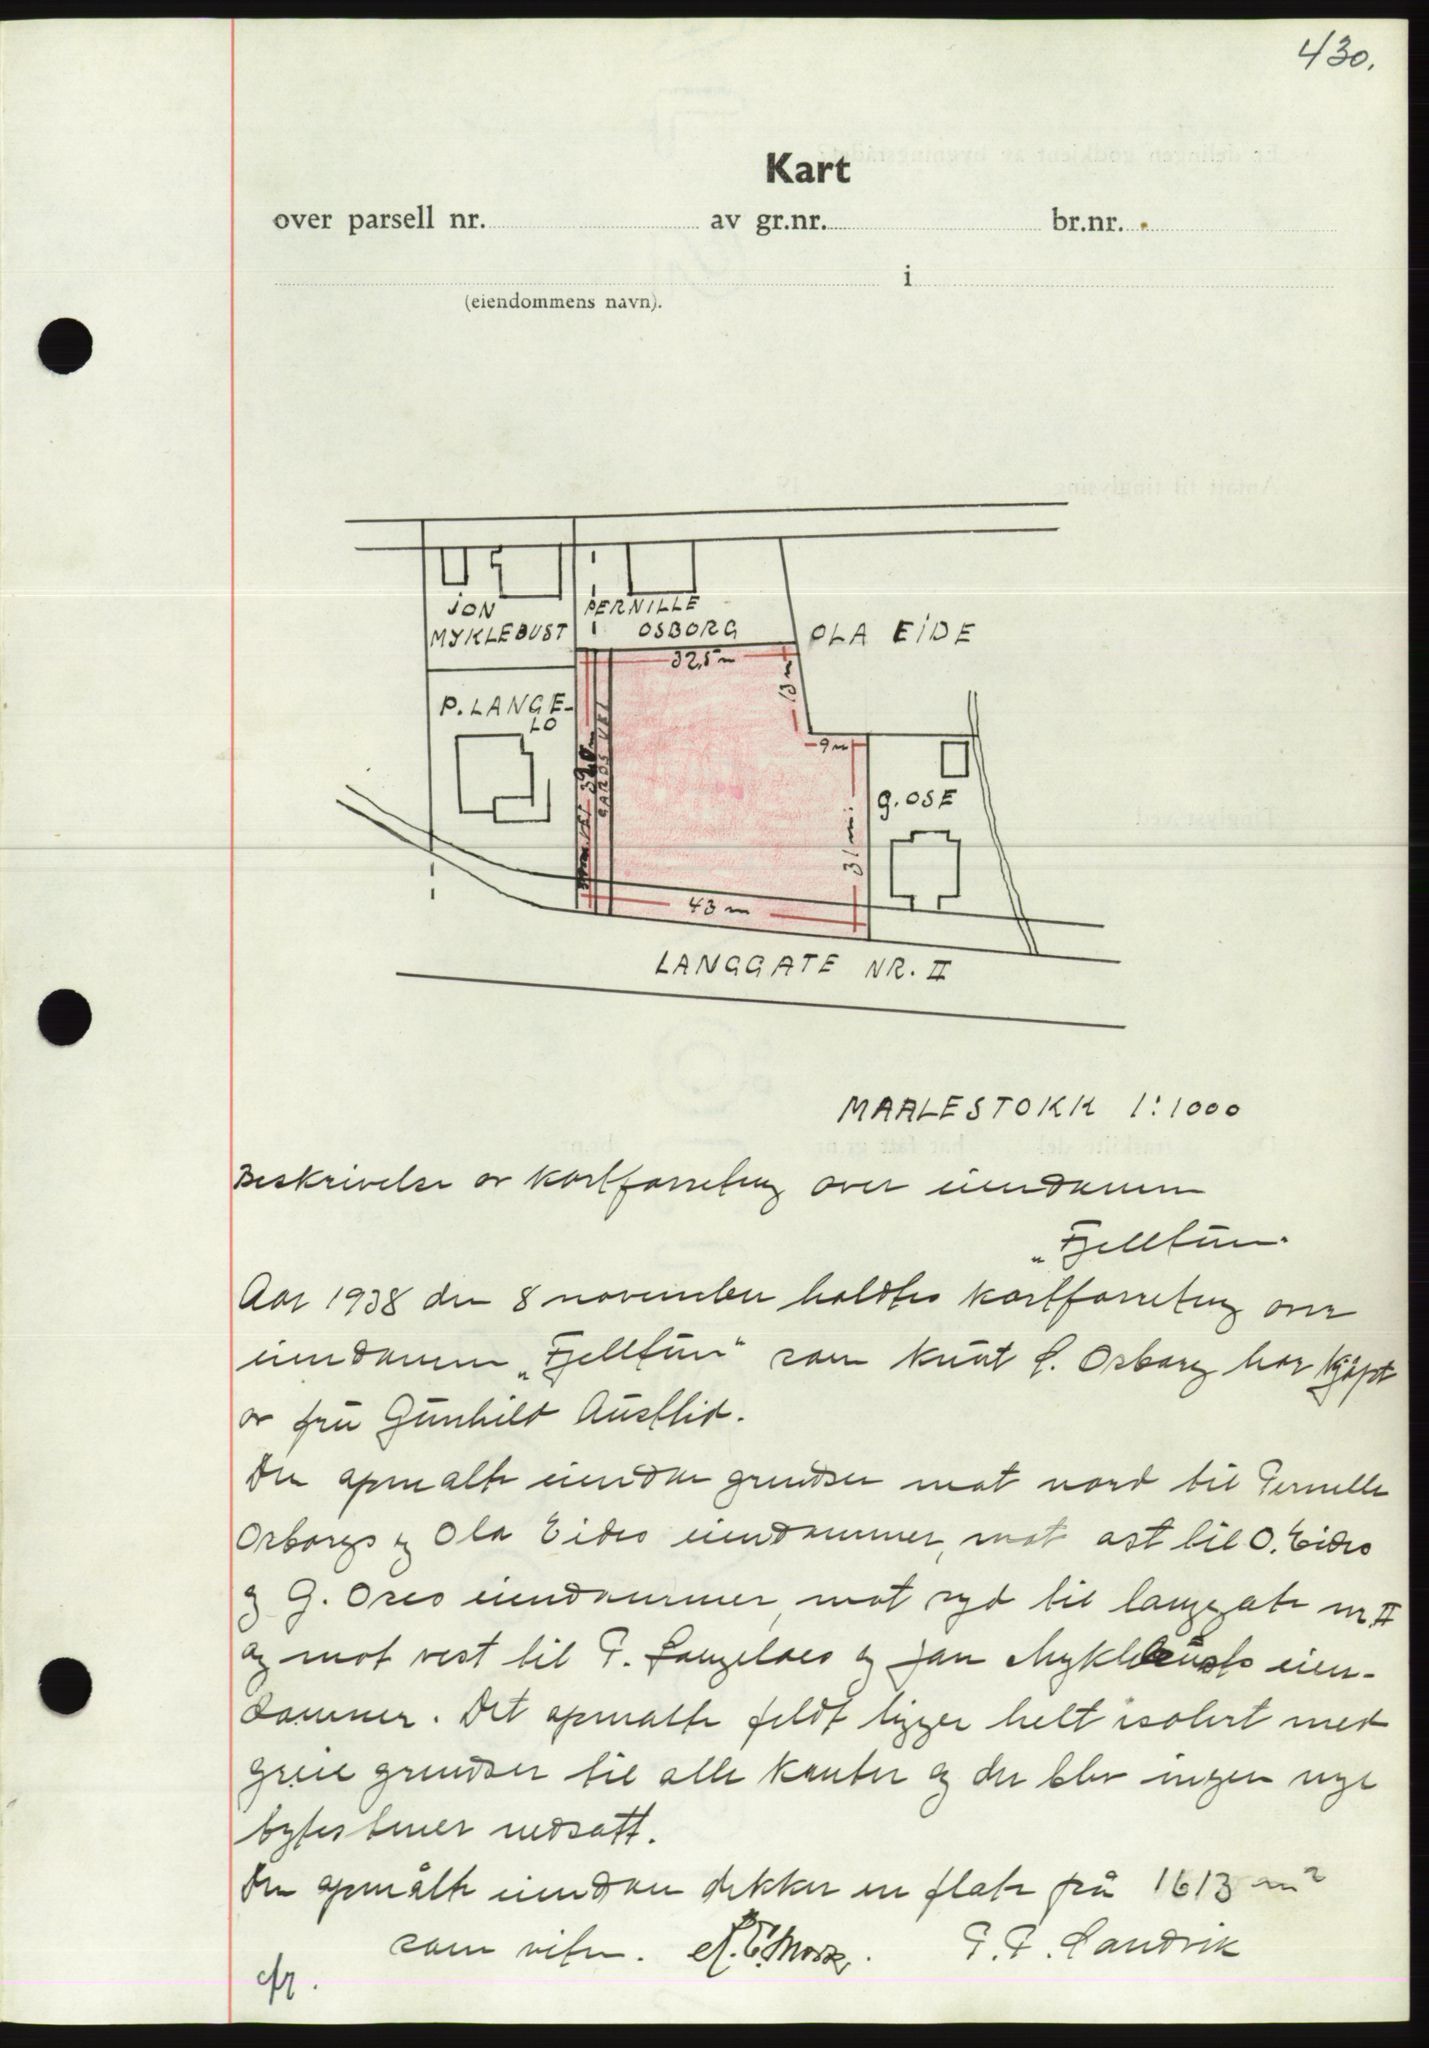 430.
Kart
over parsell nr. av gr.nr. br.nr.
i
(eiendommens navn).
JON
MYKLEBUST
PERNILLE
OSBORG
OLA EIDE
32,5 m
13 m
P. LANGE-
LO
GARDS VEI
9 m
G. OSE
31 m.
43 m
LANGGATE NR. II
MAALESTOKK 1:1000
Beskrivelse av kartforretning over eiendommen
"Fjelltun.
Aar 1938 den 8 november holdtes kartforretning over
eiendommen "Fjelltun" som Knut L. Osborg har kjøpt
av fru Gunhild Austlid.
Den opmalte eiendom grendser mot nord til Pernille
Osborgs og Ola Eides eiendommer, mot øst til O. Eides
og G. Oses eiendommer, mot syd til langgate nr. II
og mot vest til P. Langeloes og Jon Myklebusts eien-
dommer. Det opmalte feldt ligger helt isolert med
greie grendser til alle kanter og der blev ingen nye
bytestener nedsatt.
Den opmålte eiendom dekker en flate på 1613 m²
som viten. P. P. Landvik